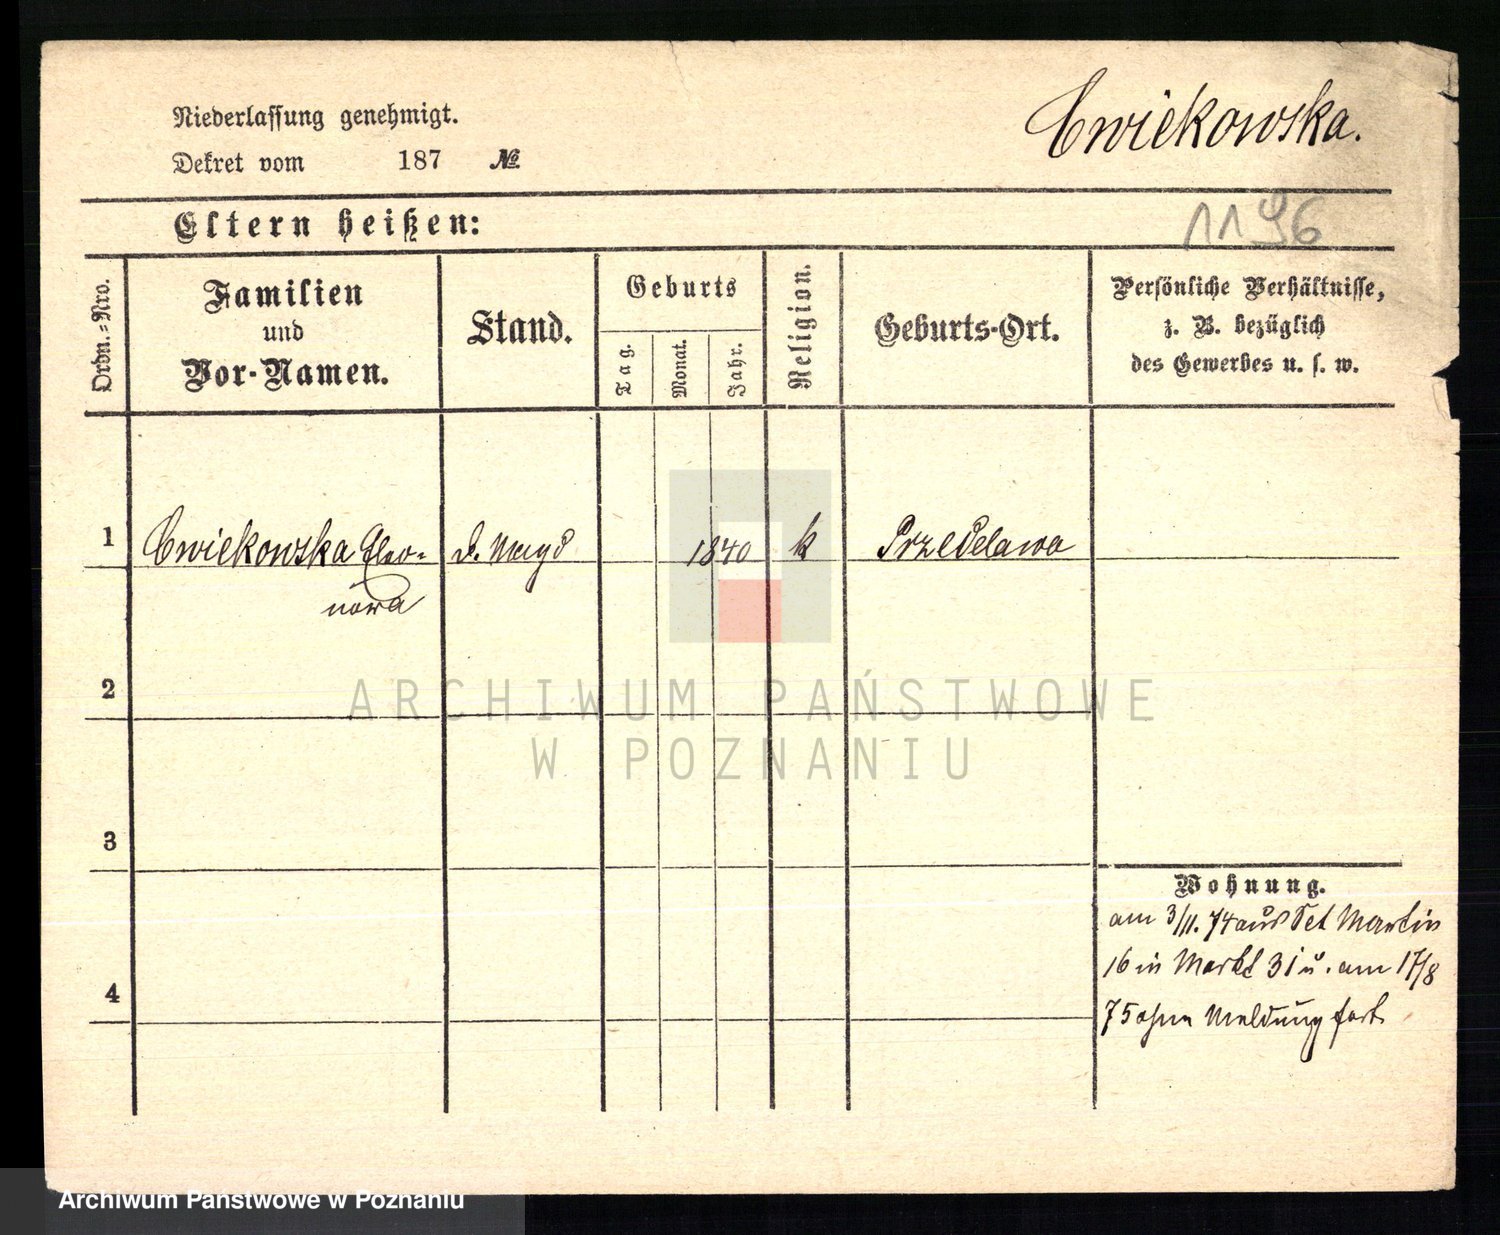 Niederlassung genehmigt.
Cwiekowska.
Dekret vom 187 №
Eltern heißen:
1196
Ordn.=Nro.
Familien
und
Vor-Namen.
Stand.
Geburts
Tag.
Monat.
Jahr.
Religion.
Geburts-Ort.
Persönliche Verhältnisse,
z. B. bezüglich
des Gewerbes u. s. w.
1 Cwiekowska Eleo= d. Magd 1840 k
nora
2
ARCHIWUM PAŃSTWOWE
W POZNANIU
3
Wohnung.
am 3/11. 74 aus Sct Martin
16 in Markt 31 u. am 17/8
4
75 ohne Meldung fort.
Archiwum Państwowe w Poznaniu